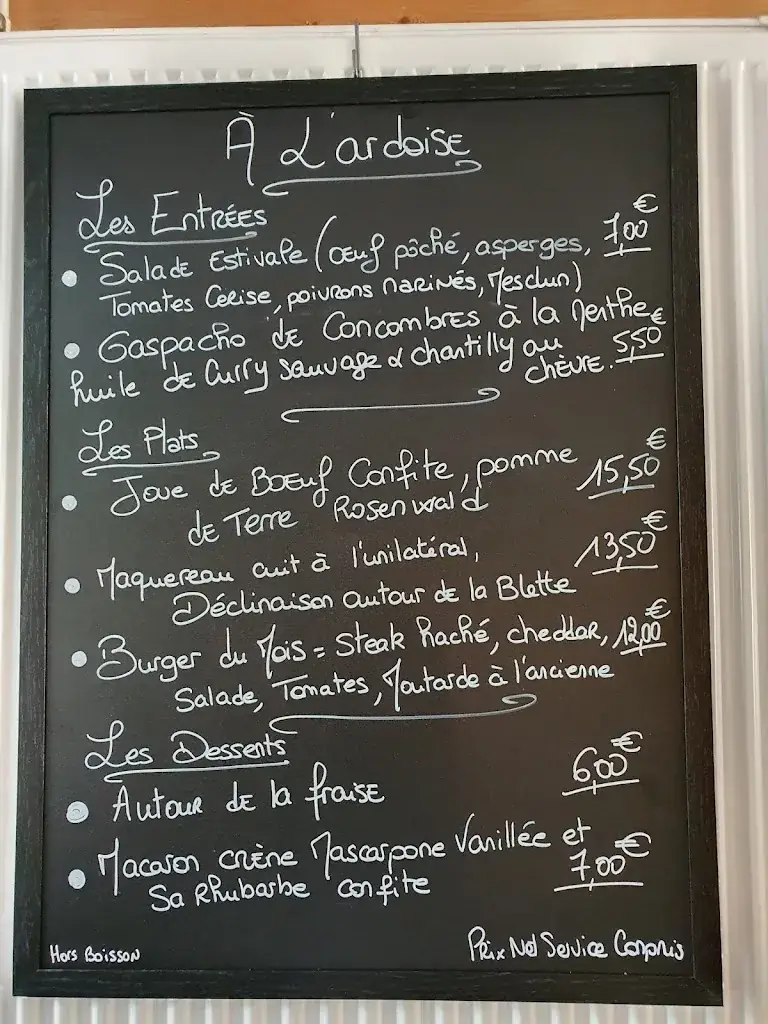 À L'ardoise
Les Entrées
• Salade Estivale (œuf pôché, asperges, 7,00 €
Tomates Cerise, poivrons marinés, Mesclun)
• Gaspacho de Concombres à la Menthe
huile de Curry Sauvage & chantilly au chèvre. 5,50 €
Les Plats
• Joue de Bœuf Confite, pomme 15,50 €
de Terre Rosenwald
• Maquereau cuit à l'unilatéral, 13,50 €
Déclinaison autour de la Blette
• Burger du Mois = Steak haché, cheddar, 12,00 €
Salade, Tomates, Moutarde à l'ancienne
Les Desserts
• Autour de la fraise 6,00 €
• Macaron crème Mascarpone Vanillée et 7,00 €
Sa Rhubarbe confite
Hors Boisson
Prix Net Service Compris